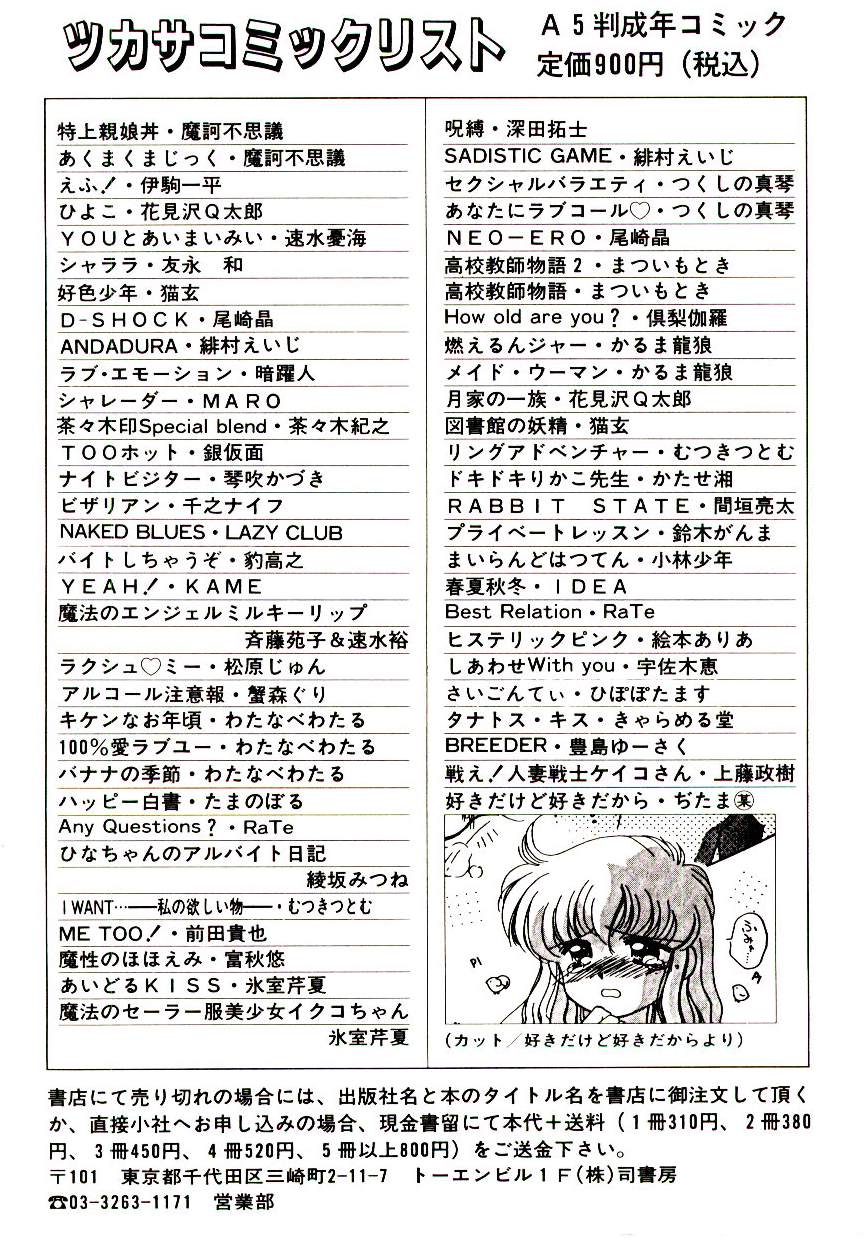 ツカサコミックリスト
A5判成年コミック
定価900円（税込）
特上親娘丼・魔訶不思議
あくまくまじっく・魔訶不思議
えふ！・伊駒一平
ひよこ・花見沢Q太郎
YOUとあいまいみい・速水憂海
シャララ・友永　和
好色少年・猫玄
D-SHOCK・尾崎晶
ANDADURA・緋村えいじ
ラブ・エモーション・暗躍人
シャレーダー・MARO
茶々木印Special blend・茶々木紀之
TOOホット・銀仮面
ナイトビジター・琴吹かづき
ビザリアン・千之ナイフ
NAKED BLUES・LAZY CLUB
バイトしちゃうぞ・豹高之
YEAH！・KAME
魔法のエンジェルミルキーリップ
斉藤苑子＆速水裕
ラクシュ♡ミー・松原じゅん
アルコール注意報・蟹森ぐり
キケンなお年頃・わたなべわたる
100％愛ラブユー・わたなべわたる
バナナの季節・わたなべわたる
ハッピー白書・たまのぼる
Any Questions？・RaTe
ひなちゃんのアルバイト日記
綾坂みつね
I WANT…──私の欲しい物──・むつきつとむ
ME TOO！・前田貴也
魔性のほほえみ・富秋悠
あいどるKISS・氷室芹夏
魔法のセーラー服美少女イクコちゃん
氷室芹夏
呪縛・深田拓士
SADISTIC GAME・緋村えいじ
セクシャルバラエティ・つくしの真琴
あなたにラブコール♡・つくしの真琴
NEO－ERO・尾崎晶
高校教師物語2・まついもとき
高校教師物語・まついもとき
How old are you？・倶梨伽羅
燃えるんジャー・かるま龍狼
メイド・ウーマン・かるま龍狼
月家の一族・花見沢Q太郎
図書館の妖精・猫玄
リングアドベンチャー・むつきつとむ
ドキドキりかこ先生・かたせ湘
RABBIT　STATE・間垣亮太
プライベートレッスン・鈴木がんま
まいらんどはつてん・小林少年
春夏秋冬・IDEA
Best Relation・RaTe
ヒステリックピンク・絵本ありあ
しあわせWith you・宇佐木恵
さいごんてぃ・ひぽぽたます
タナトス・キス・きゃらめる堂
BREEDER・豊島ゆーさく
戦え！人妻戦士ケイコさん・上藤政樹
好きだけど好きだから・ぢたま㊑
ふみゃ…
（カット／好きだけど好きだからより）
書店にて売り切れの場合には、出版社名と本のタイトル名を書店に御注文して頂く
か、直接小社へお申し込みの場合、現金書留にて本代＋送料（1冊310円、2冊380
円、3冊450円、4冊520円、5冊以上800円）をご送金下さい。
〒101　東京都千代田区三崎町2-11-7　トーエンビル1F（株）司書房
☎03-3263-1171　営業部